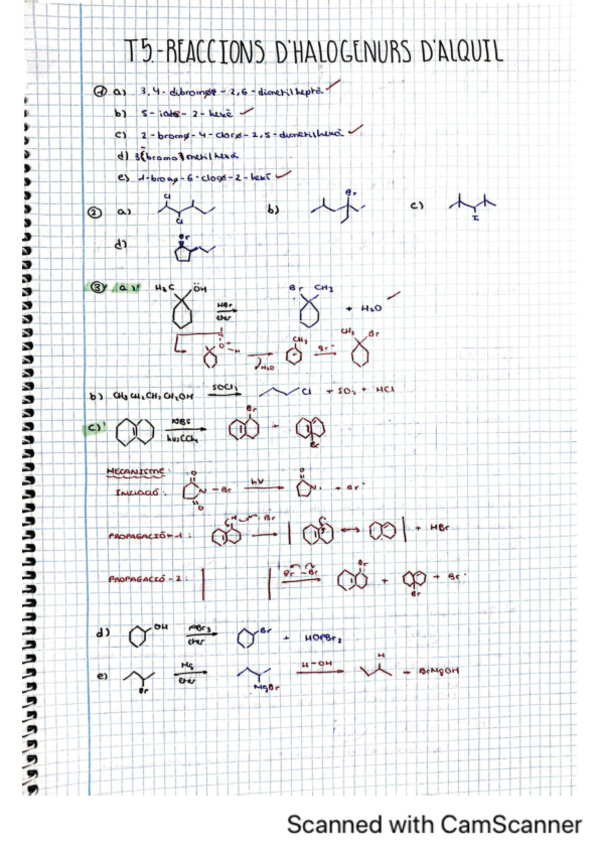 T5.-REACCIONS D'HALOGENURS D'ALQUIL
① a) 3,4-dibromo-2,6-dimetilheptà.
b) 5-iodo-2-hexè
c) 2-bromo-4-cloro-2,5-dimetilhexà
d) 3(bromo)metilhexà
e) 1-bromo-6-cloro-2-hexí
② a) Cl Cl b) Br c) I
d) Br
③ a) H₃C OH HBr eter Br CH₃ + H₂O
H₂O CH₃ Br⁻ CH₃ Br
b) CH₃CH₂CH₂CH₂OH SOCl₂ Cl + SO₂ + HCl
c) NBS hν, CCl₄ Br + Br
MECANISME:
INICIACIÓ: O N-Br O hν O N· + Br·
PROPAGACIÓ-1: H Br + HBr
PROPAGACIÓ-2: Br-Br Br + Br + Br·
d) OH PBr₃ eter Br + HOPBr₂
e) Br Mg eter MgBr H-OH H + BrMgOH
Scanned with CamScanner